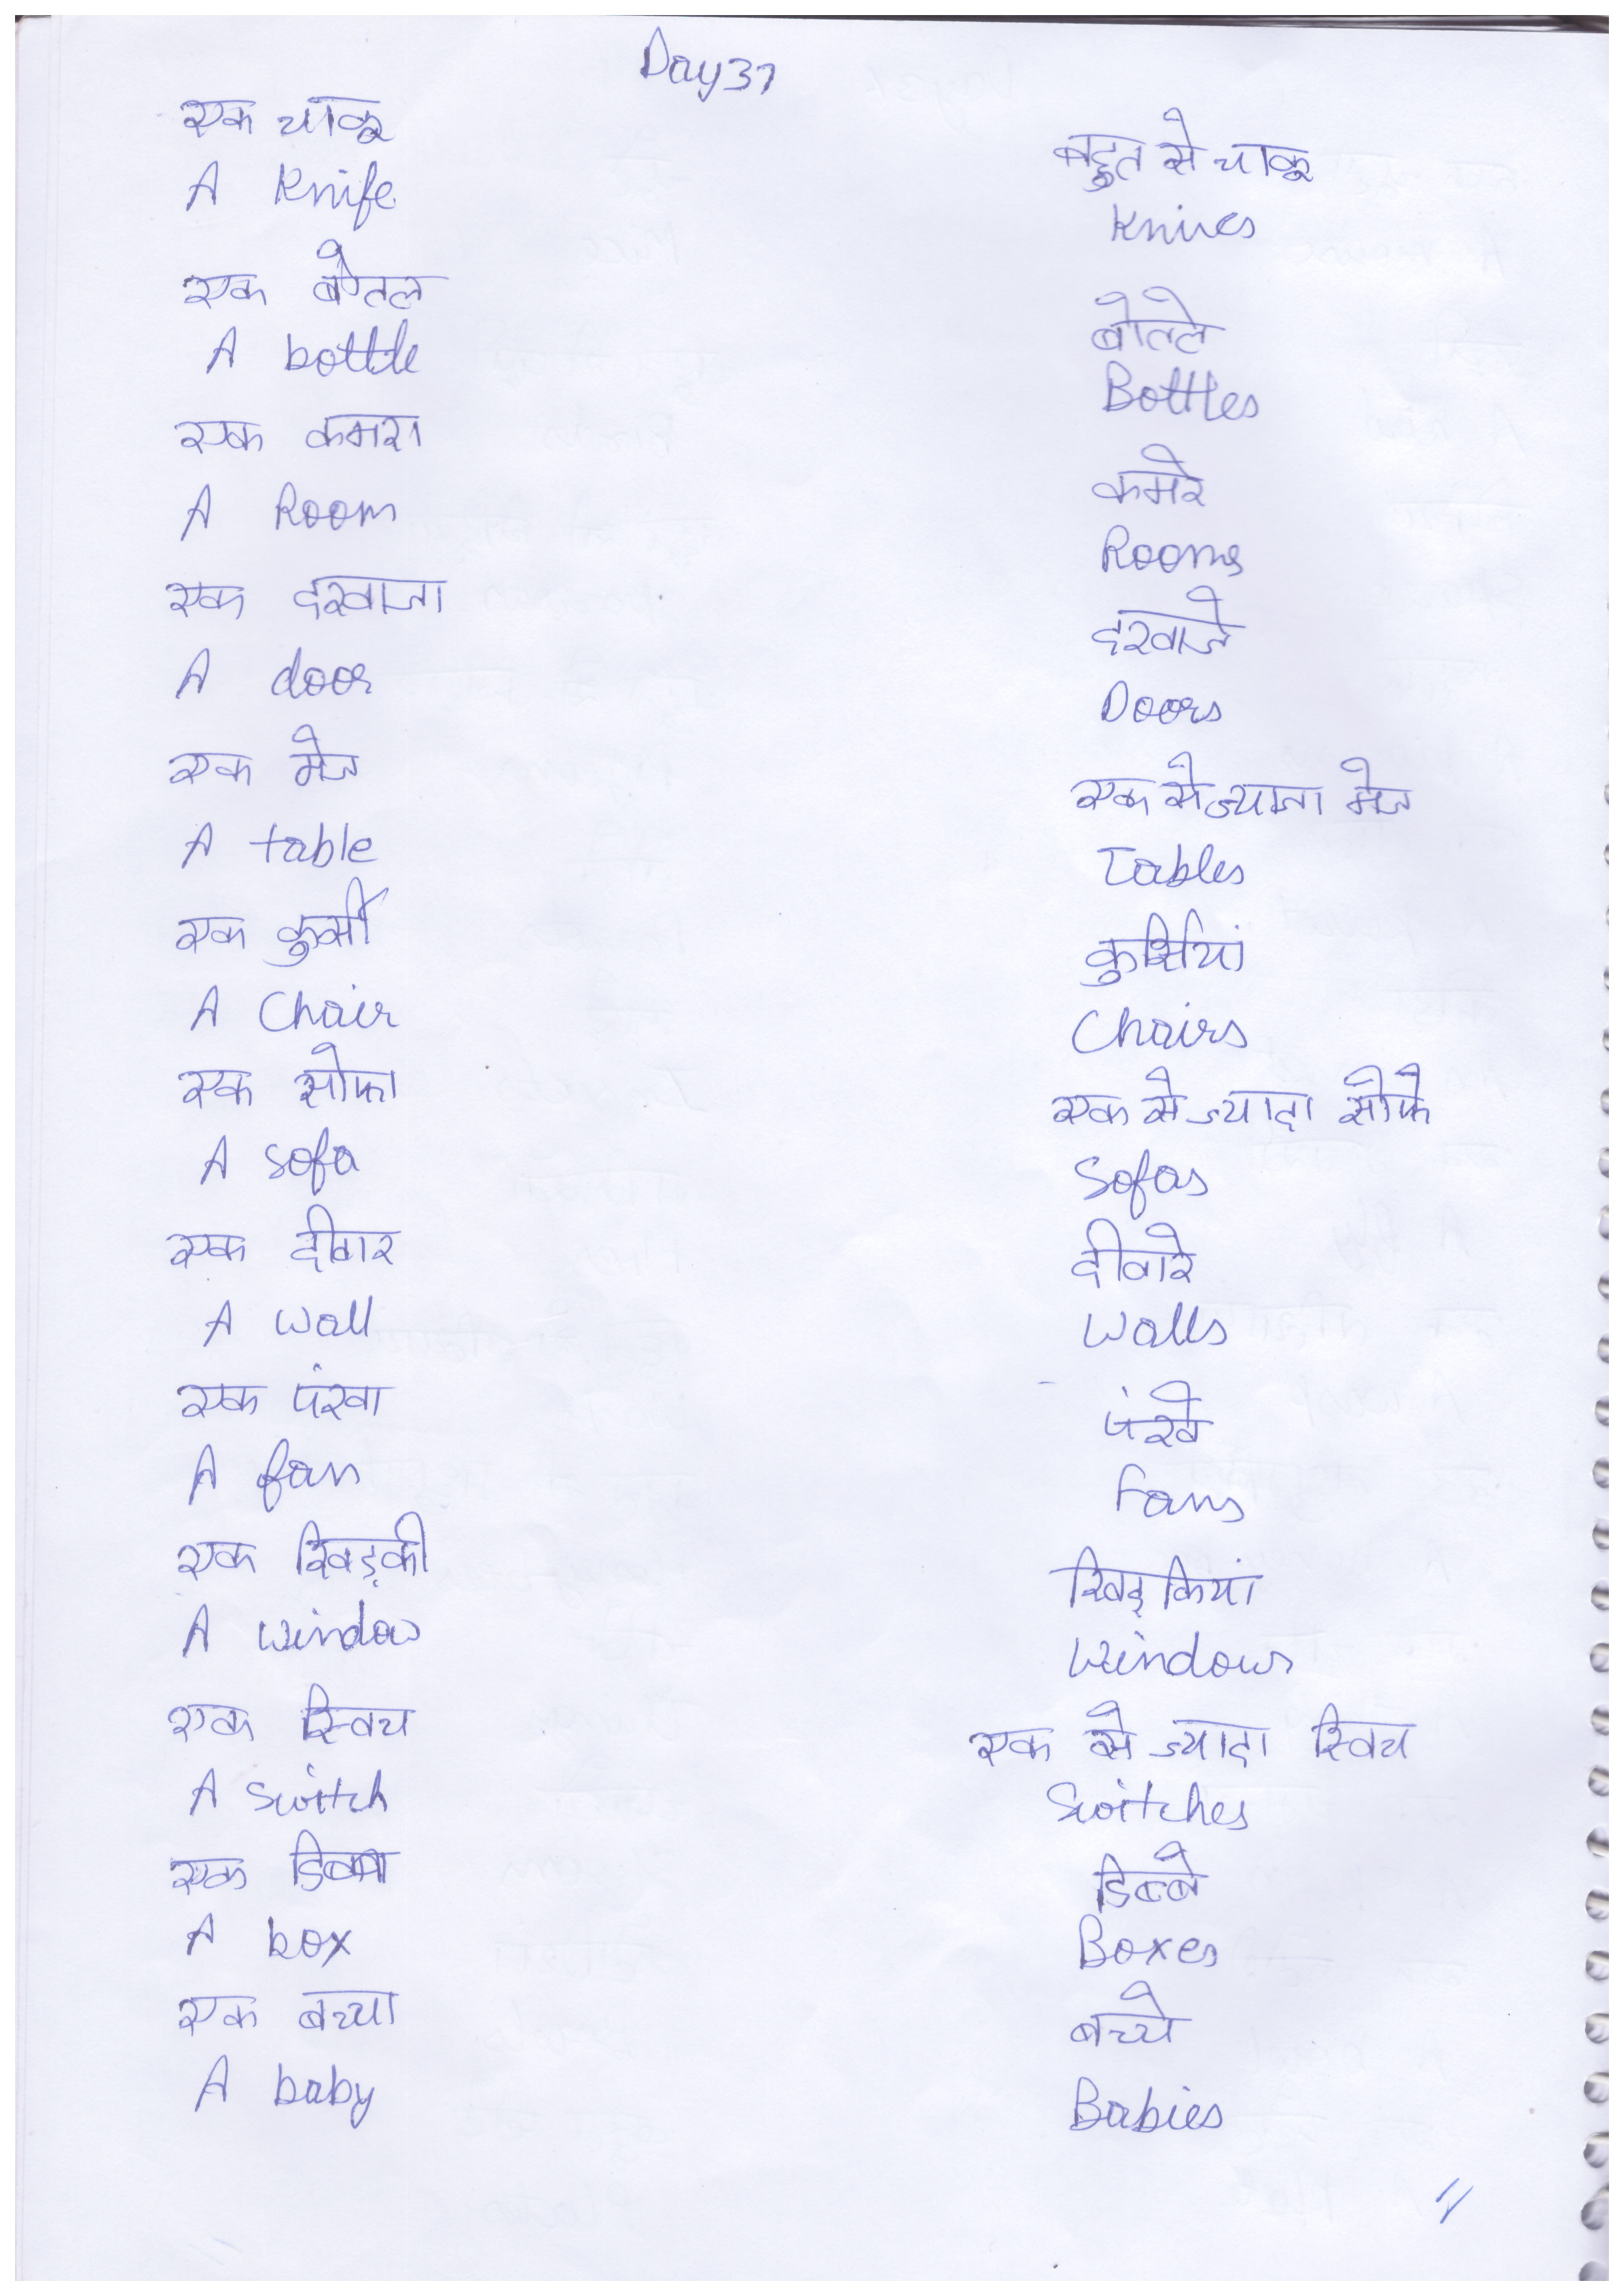 Day 37
एक चाकू
A Knife
एक बोतल
A bottle
एक कमरा
A Room
एक दरवाजा
A door
एक मेज
A table
एक कुर्सी
A Chair
एक सोफा
A sofa
एक दीवार
A Wall
एक पंखा
A fan
एक खिड़की
A Window
एक स्विच
A Switch
एक डिब्बा
A box
एक बच्चा
A baby
बहुत से चाकू
Knives
बोतले
Bottles
कमरे
Rooms
दरवाजे
Doors
एक से ज्यादा मेज
Tables
कुर्सियां
Chairs
एक से ज्यादा सोफे
Sofas
दीवारे
Walls
पंखे
Fans
खिड़कियां
Windows
एक से ज्यादा स्विच
Switches
डिब्बे
Boxes
बच्चे
Babies